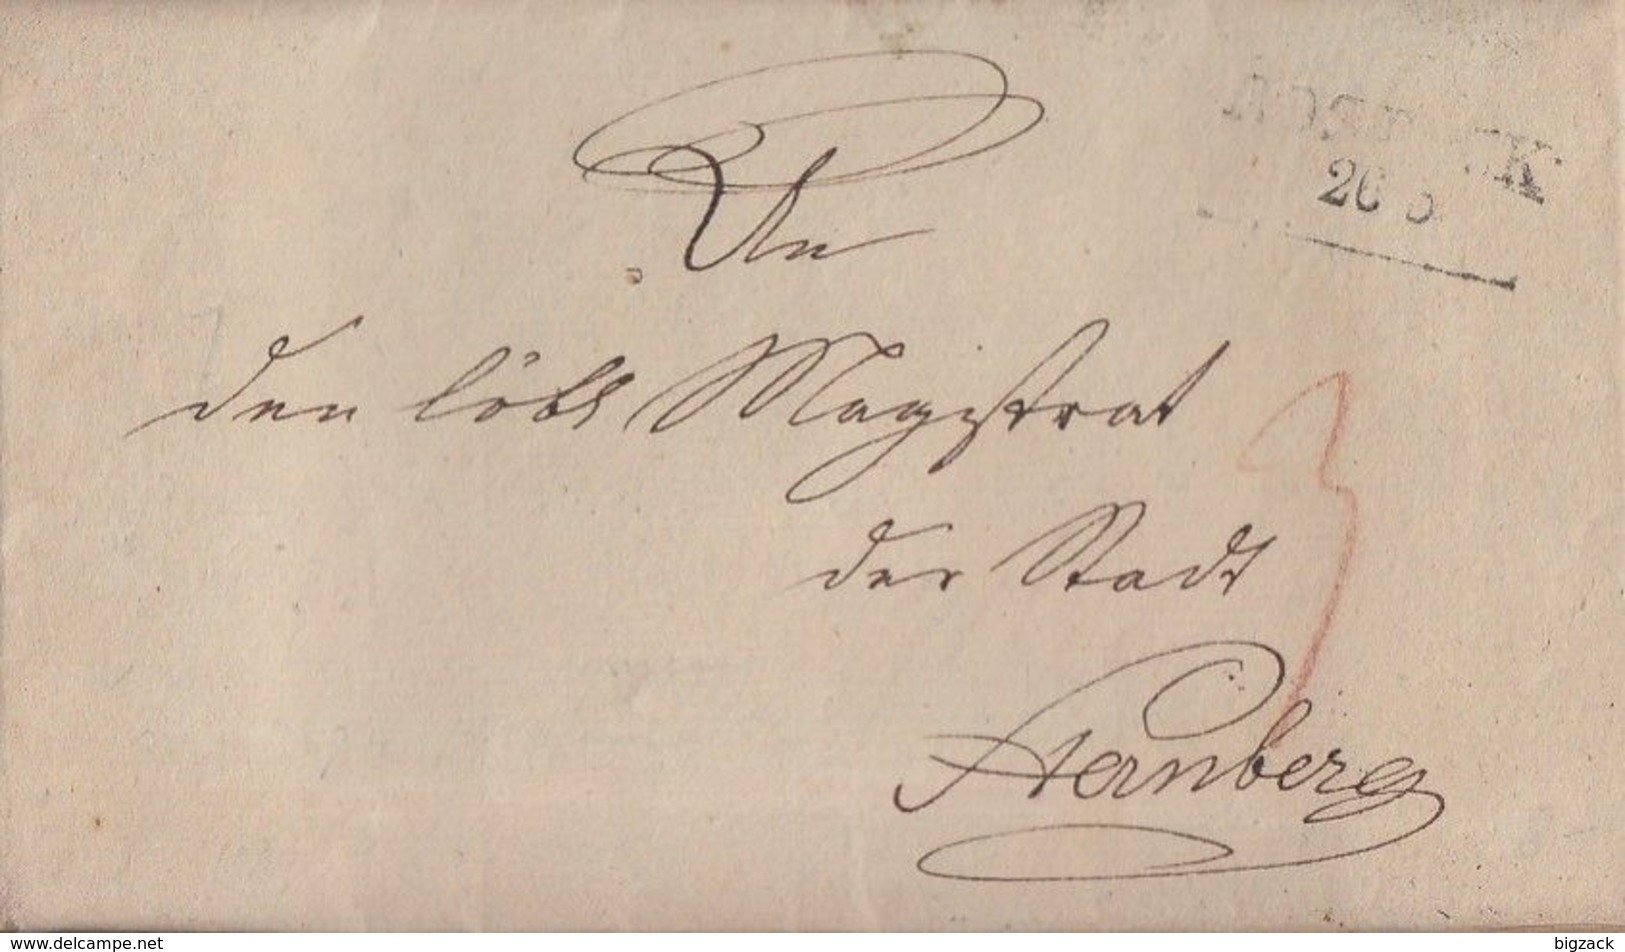 ROSTOCK
26 5
An
den löbl Magistrat
der Stadt
Sternberg
3
www.delcampe.net
bigzack